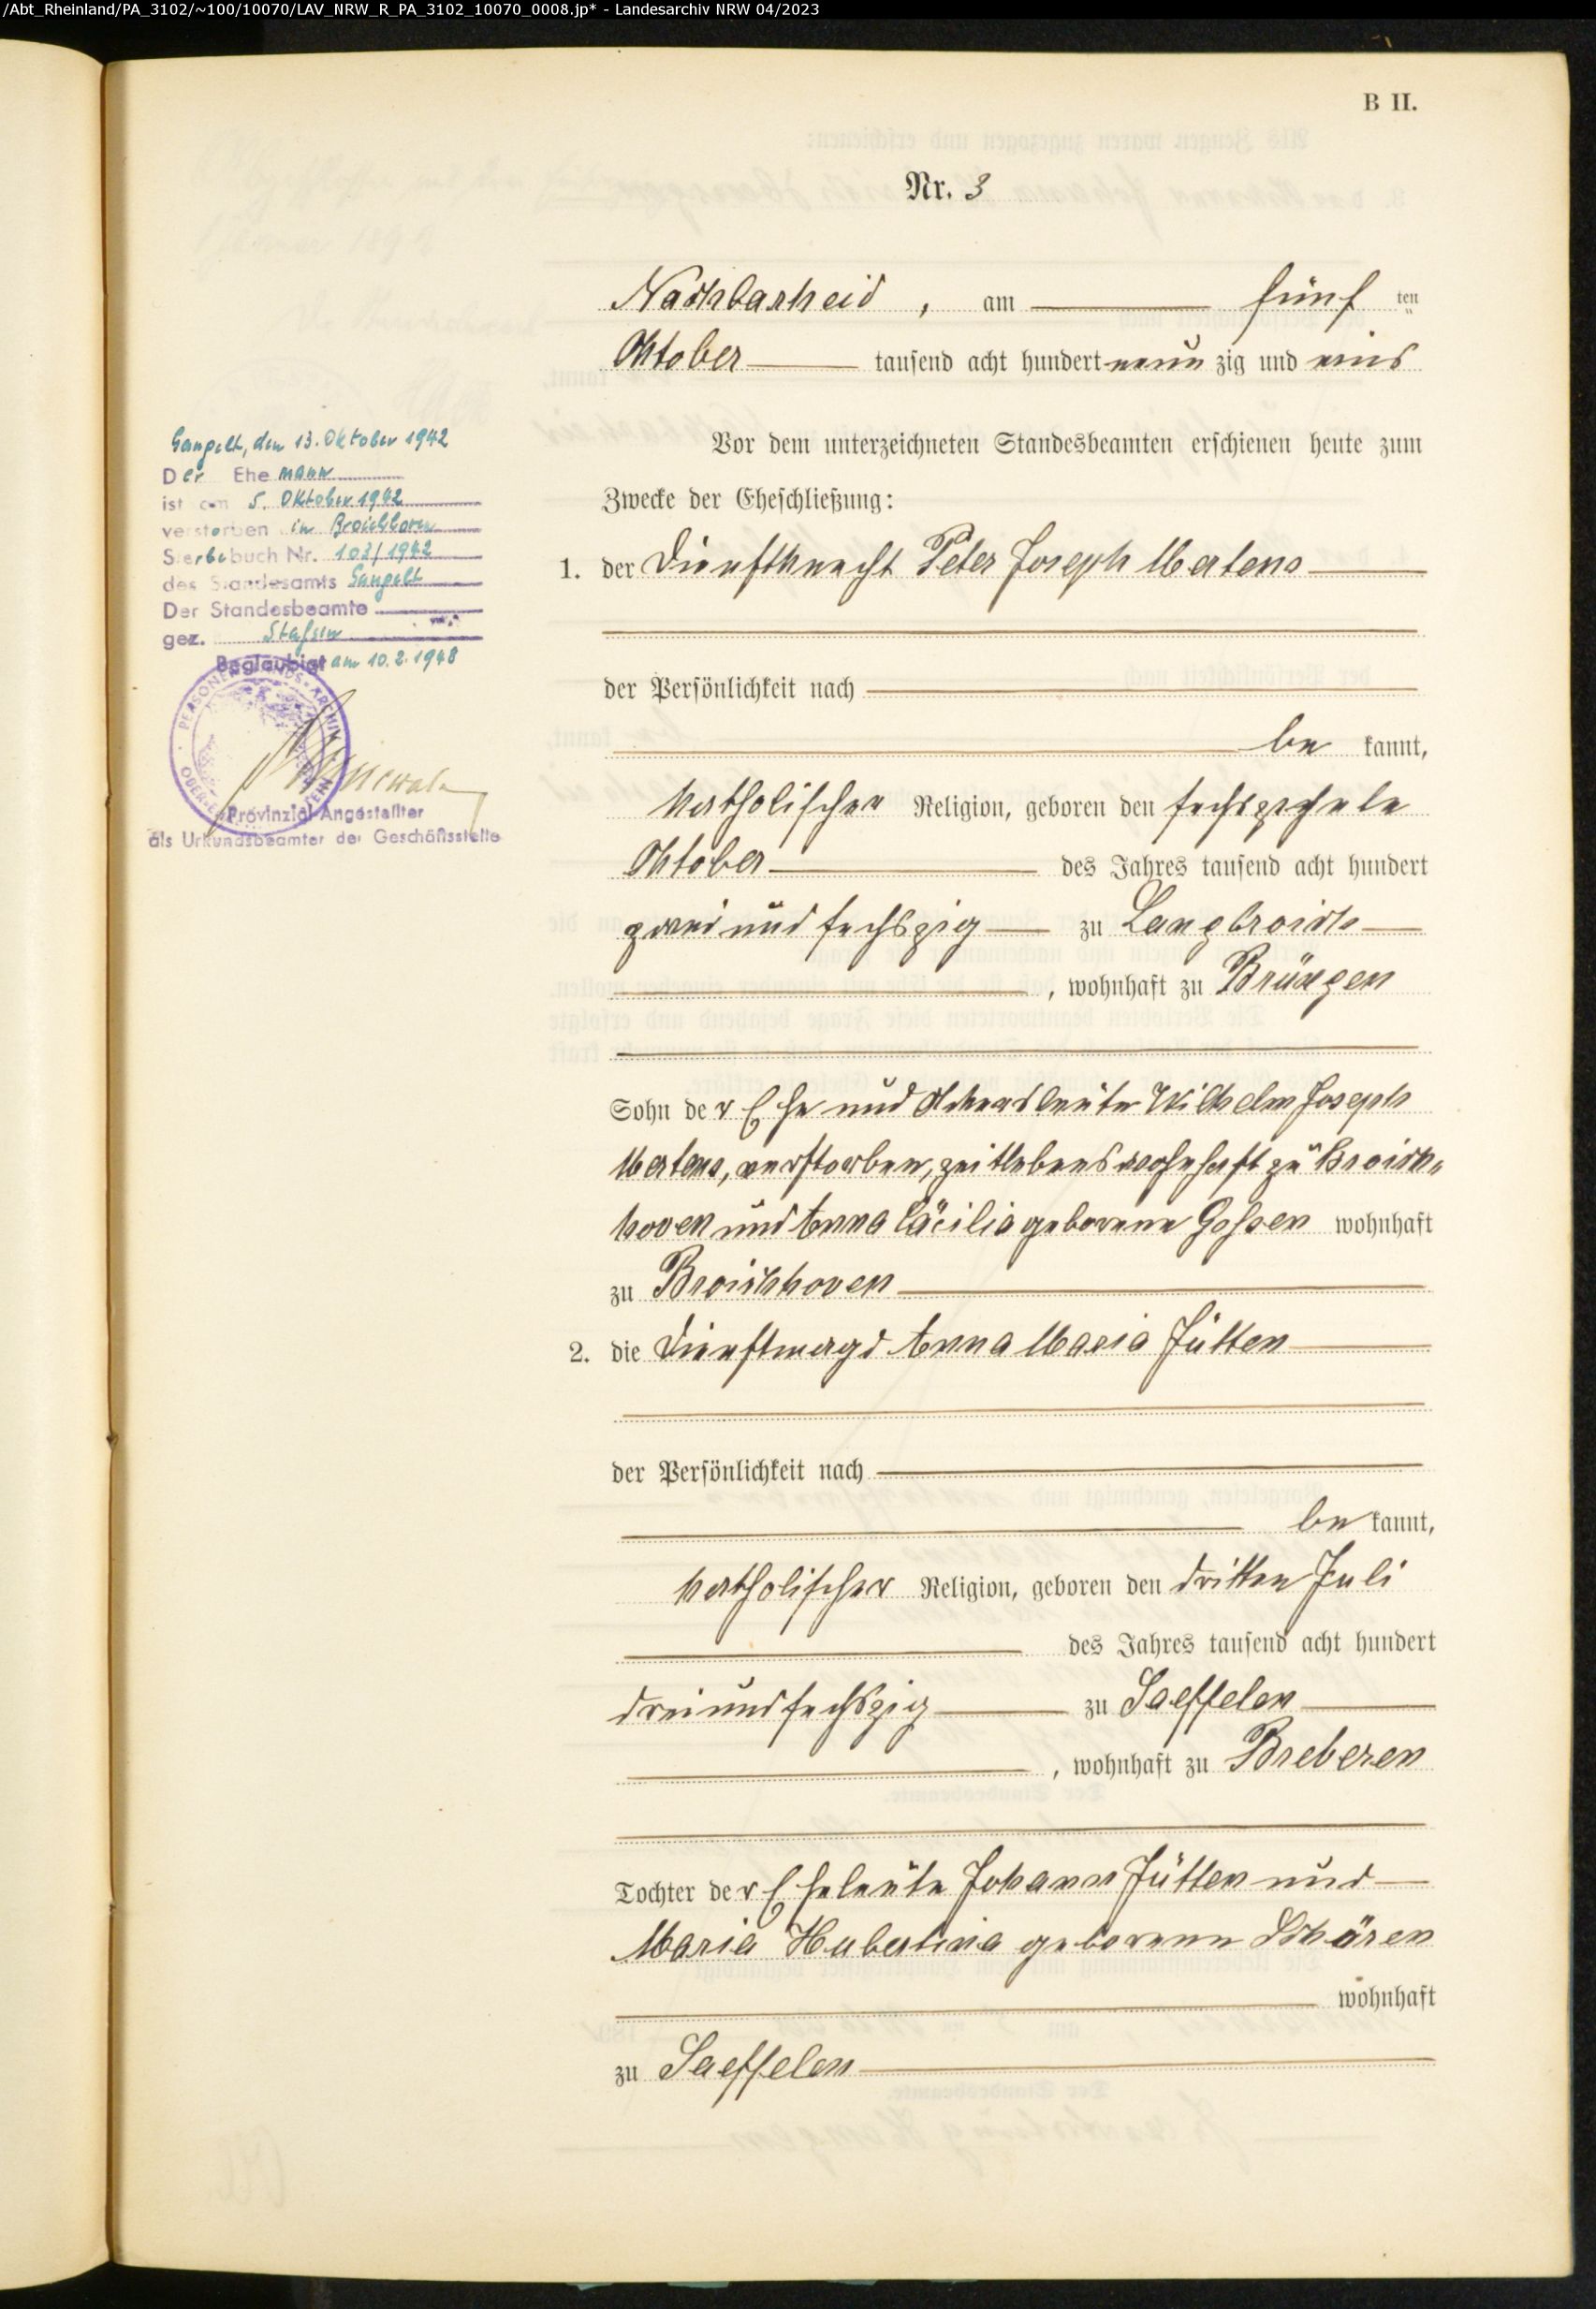 /Abt_Rheinland/PA_3102/~100/10070/LAV_NRW_R_PA_3102_10070_0008.jp* - Landesarchiv NRW 04/2023
B II.
Nr. 3
Nachbarheid, am fünf ten
Oktober tausend acht hundert neun zig und eins
Gangelt, den 13. Oktober 1942
Der Ehemann
ist am 5. Oktober 1942
verstorben in Broichhoven
Sterbebuch Nr. 103/1942
des Standesamts Gangelt
Der Standesbeamte
gez.
Beglaubigt am 10.2.1948
PERSONENSTANDS-ARCHIV
Provinzial-Angestellter
als Urkundsbeamter der Geschäftsstelle
Vor dem unterzeichneten Standesbeamten erschienen heute zum
Zwecke der Eheschließung:
1. der Dienstknecht Peter Joseph Mertens
der Persönlichkeit nach
be kannt,
katholischer Religion, geboren den sechszehnte
Oktober des Jahres tausend acht hundert
zwei und sechszig zu Langbroich
, wohnhaft zu Brüxgen
Sohn der Ehe und Ackersleute Wilhelm Joseph
Mertens, verstorben, zeitlebens wohnhaft zu Broich-
hoven und Anna Cäcilia geborene Gossen wohnhaft
zu Broichhoven
2. die Dienstmagd Anna Maria Jütten
der Persönlichkeit nach
be kannt,
katholischer Religion, geboren den dritten Juli
des Jahres tausend acht hundert
drei und sechszig zu Saeffelen
, wohnhaft zu Breberen
Tochter der Eheleute Johann Jütten und
Maria Hubertina geborene Schören
wohnhaft
zu Saeffelen